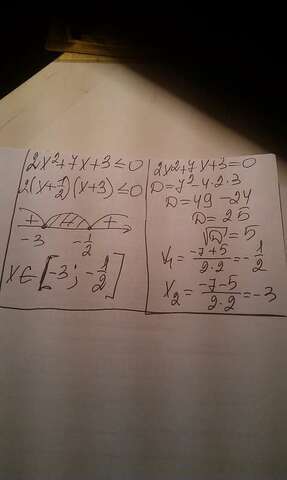 2x²+7x+3≤0
2(x+1/2)(x+3)≤0
+ − +
-3 -1/2
x∈[-3; -1/2]
2x²+7x+3=0
D=7²-4·2·3
D=49-24
D=25
√D=5
x₁=(-7+5)/(2·2)=-1/2
x₂=(-7-5)/(2·2)=-3